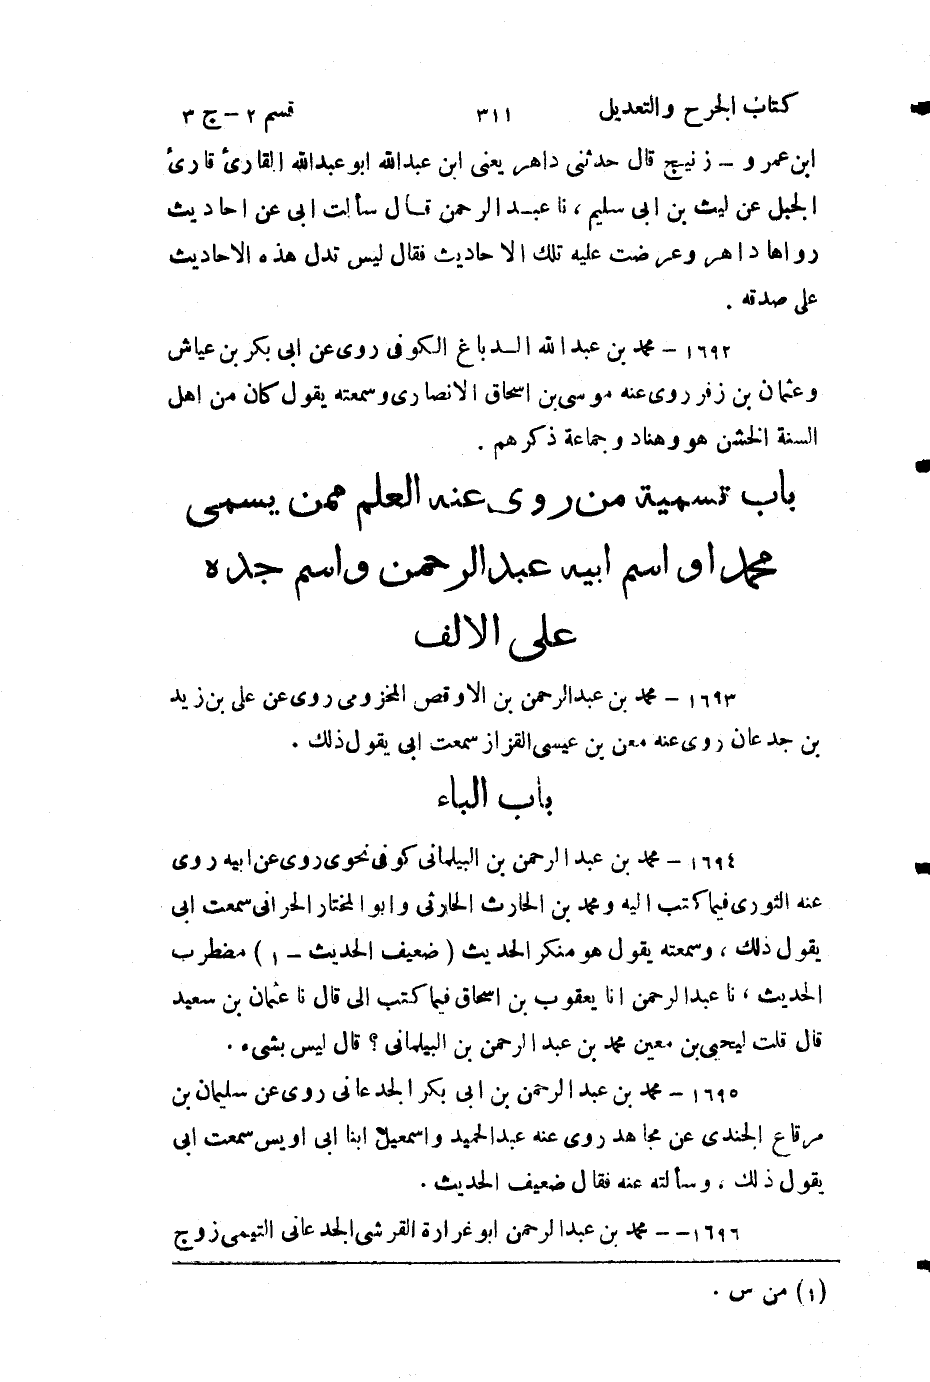 كتاب الجرح والتعديل ٣١١ قسم ٢ - ج ٣
ابن عمرو - زنيج قال حدثنى داهر يعنى ابن عبدالله ابو عبدالله القارئ قارئ
الجبل عن ليث بن ابى سليم ، نا عبد الرحمن قال سألت ابى عن احاديث
رواها داهر وعرضت عليه تلك الاحاديث فقال ليس تدل هذه الاحاديث
على صدقه .
١٦٩٢ - محمد بن عبد الله الدباغ الكوفى روى عن ابى بكر بن عياش
وعثمان بن زفر روى عنه موسى بن اسحاق الانصارى وسمعته يقول كان من اهل
السنة الخشن هو وهناد وجماعة ذكرهم .
باب تسمية من روى عنه العلم ممن يسمى
محمدا واسم ابيه عبدالرحمن واسم جده
على الالف
١٦٩٣ - محمد بن عبدالرحمن بن الاوقص المخزومى روى عن على بن زيد
بن جدعان روى عنه معن بن عيسى القزاز سمعت ابى يقول ذلك .
باب الباء
١٦٩٤ - محمد بن عبد الرحمن بن البيلمانى كوفى نحوى روى عن ابيه روى
عنه الثورى فيما كتب اليه ومحمد بن الحارث الحارثى وابو المختار الحرانى سمعت ابى
يقول ذلك ، وسمعته يقول هو منكر الحديث ( ضعيف الحديث - ١ ) مضطرب
الحديث ، نا عبدالرحمن انا يعقوب بن اسحاق فيما كتب الى قال نا عثمان بن سعيد
قال قلت ليحيى بن معين محمد بن عبد الرحمن بن البيلمانى ؟ قال ليس بشىء .
١٦٩٥ - محمد بن عبد الرحمن بن ابى بكر الجدعانى روى عن سليمان بن
مرقاع الجندى عن مجاهد روى عنه عبدالحميد واسمعيل ابنا ابى اويس سمعت ابى
يقول ذلك ، وسألته عنه فقال ضعيف الحديث .
١٦٩٦ -- محمد بن عبدالرحمن ابو غرارة القرشى الجدعانى التيمى زوج
(١) من س .